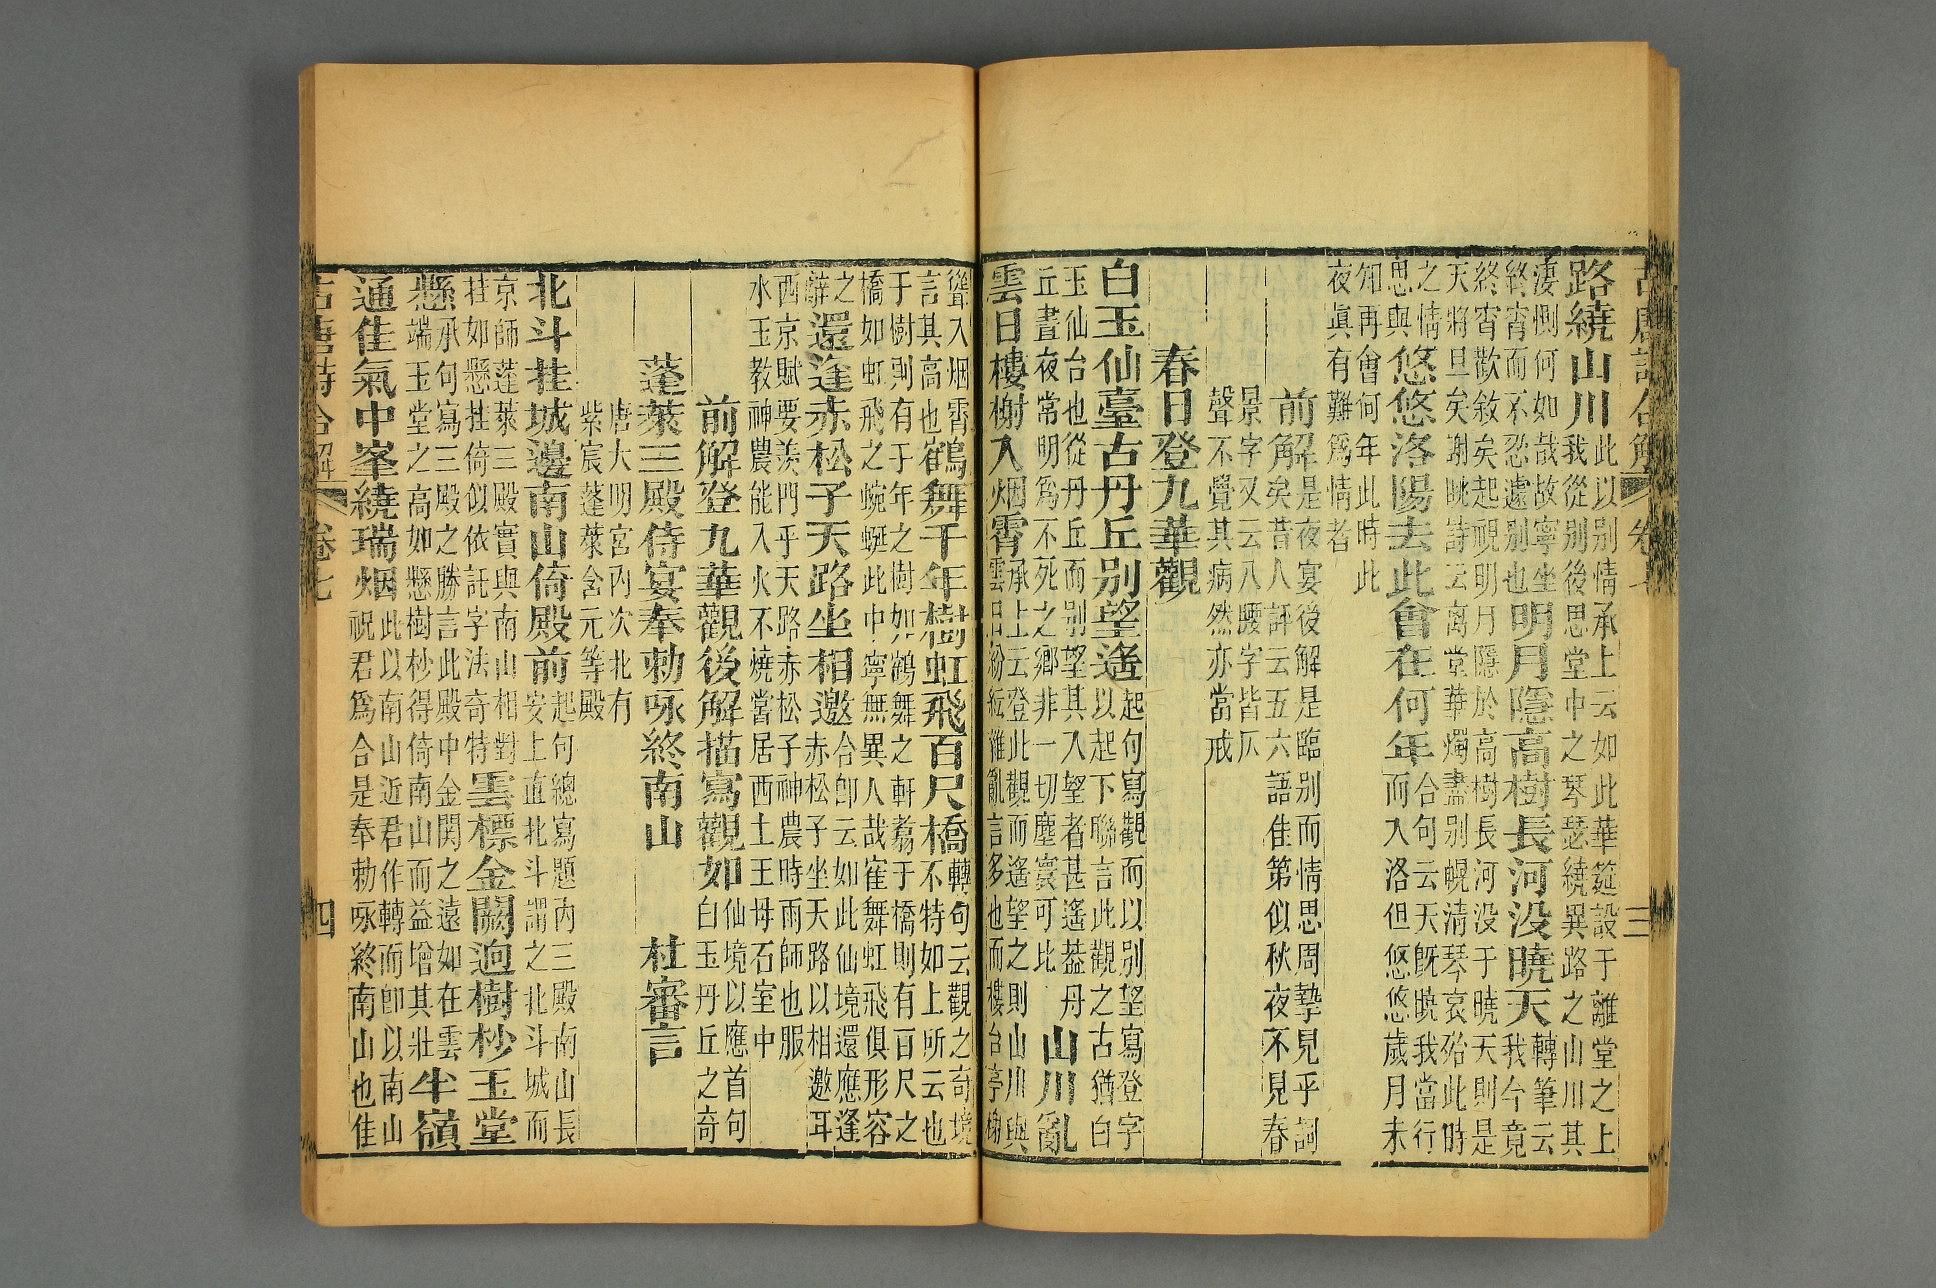 古唐詩合解 卷七 三
路繞山川
此以别情承上云如此華筵設于離堂之上
我從别後思堂中之琴瑟繞異路之山川其
淒惻何如哉故寧坐
終宵而不忍遽别也
明月隱高樹長河没曉天
轉筆云
我今竟
終宵歡敘矣起視明月隱於高樹長河没于曉天則是
天將旦矣謝朓詩云离堂華燭盡别幌清琴哀殆此時
之情
思與
悠悠洛陽去此會在何年
合句云天旣曉我當行
而入洛但悠悠歲月未
知再會何年此時此
夜眞有難爲情者
前
解是夜宴後解是臨别而情思周摯見乎詞
解矣昔人評云五六語佳第似秋夜不見春
景字又云八腰字皆仄
聲不覺其病然亦當戒
春日登九華觀
白玉仙臺古丹丘别望遙
起句寫觀而以别望寫登字
以起下聯言此觀之古猶白
玉仙台也從丹丘而别望其入望者甚遙葢丹
丘晝夜常明爲不死之鄉非一切塵寰可比
山川亂
雲日樓榭入烟霄
承上云登此觀而遙望之則山川與
雲日紛紜雜亂言多也而樓台亭榭
聳入烟霄
言其高也
鶴舞千年樹虹飛百尺橋
轉句云觀之奇境
不特如上所云也
于樹則有于年之樹如鶴舞之軒翥于橋則有百尺之
橋如虹飛之蜿蜒此中寧無異人哉寉舞虹飛俱形容
之
辭
還逢赤松子天路坐相邀
合卽云如此仙境還應逢
赤松子坐天路以相邀耳
西京賦要羨門乎天路赤松子神農時雨師也服
水玉教神農能入火不燒嘗居西土王母石室中
前解登九華觀後解描寫觀如
仙境以應首句
白玉丹丘之奇
蓬萊三殿侍宴奉勅咏終南山 杜審言
唐大明宮内次北有
紫宸蓬萊含元等殿
北斗挂城邊南山倚殿前
起句總寫題内三殿南山長
安上直北斗謂之北斗城而
京師蓬萊三殿實與南山相對
挂如懸挂倚似依託字法奇特
雲標金闕迥樹杪玉堂
懸
承句寫三殿之勝言此殿中金関之遠如在雲
端玉堂之高如懸樹杪得倚南山而益增其壯
半嶺
通佳氣中峯繞瑞烟
此以南山近君作轉而卽以南山
祝君爲合是奉勅咏終南山也佳
古唐詩合解 卷七 四